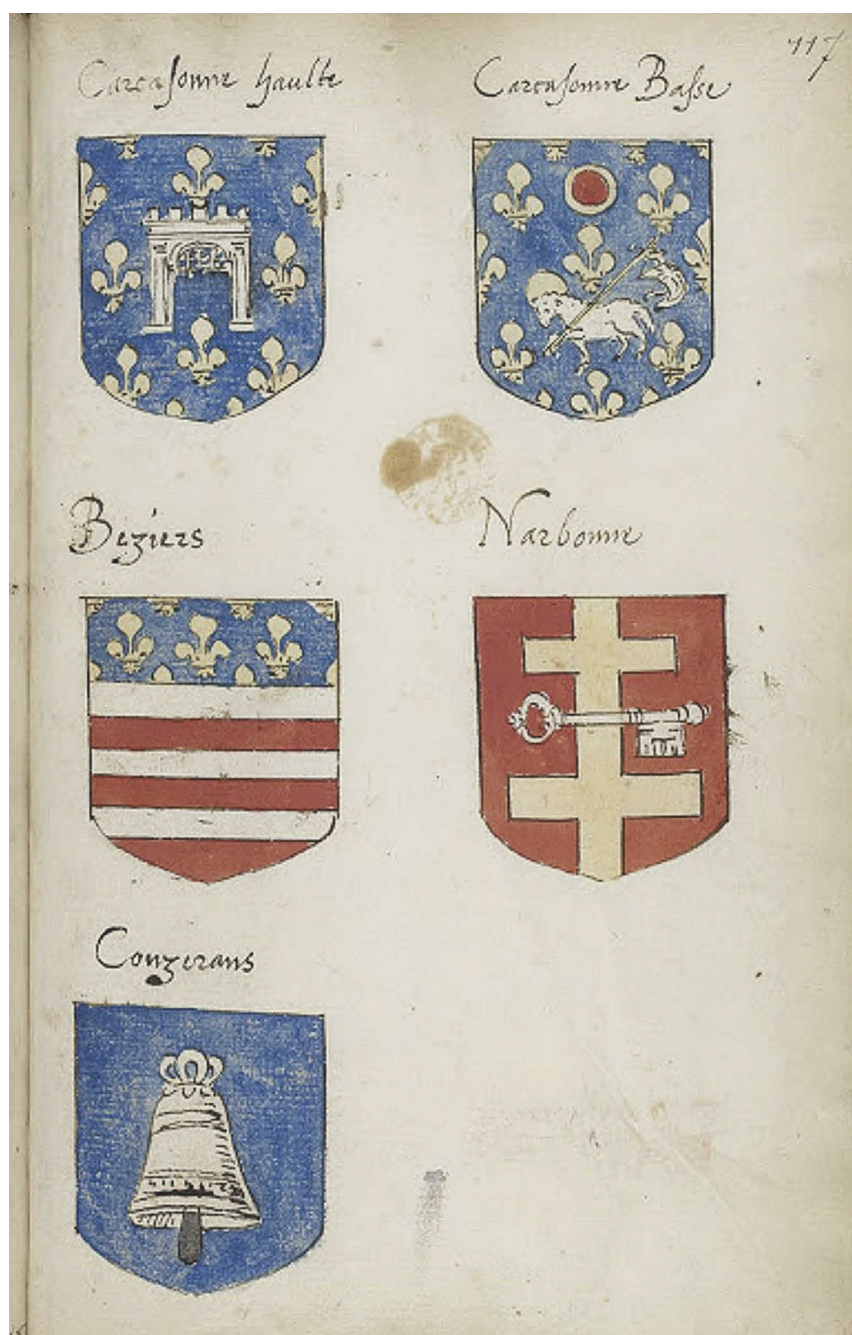 117
Carcasonne haulte
Carcasonne Basse
Beziers
Narbonne
Couzerans